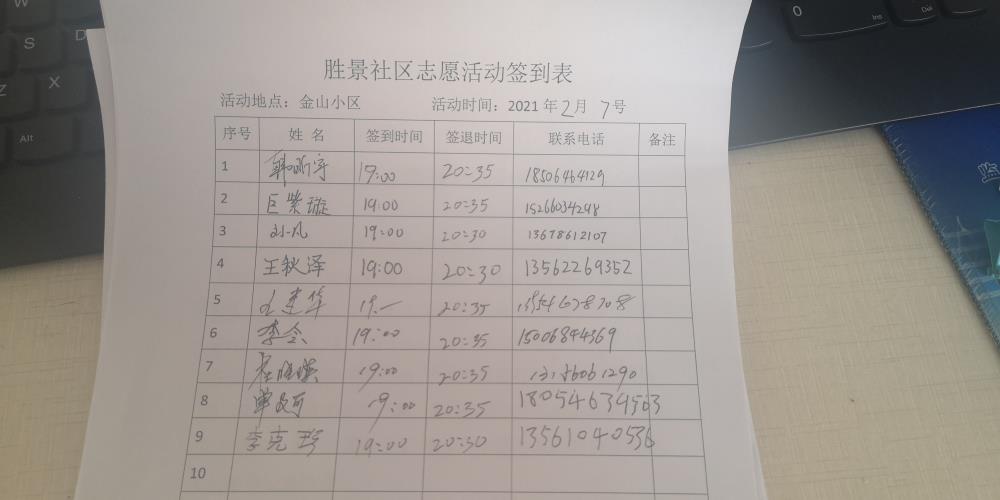 胜景社区志愿活动签到表
活动地点：金山小区 活动时间：2021年2月7号
序号 姓名 签到时间 签退时间 联系电话 备注
1 韩昕宇 19:00 20:35 18506464129
2 巨紫璇 19:00 20:35 15266034298
3 刘凡 19:00 20:30 13678612107
4 王秋泽 19:00 20:30 13562269352
5 建华 20:35
6 李会 19:00 20:35 15006844369
7 19:00 20:35
8 单文可 19:00 20:35 18054634563
9 李克珍 19:00 20:30 13561040536
10
W
S
D
Z
X
Alt
0
Ins
Del